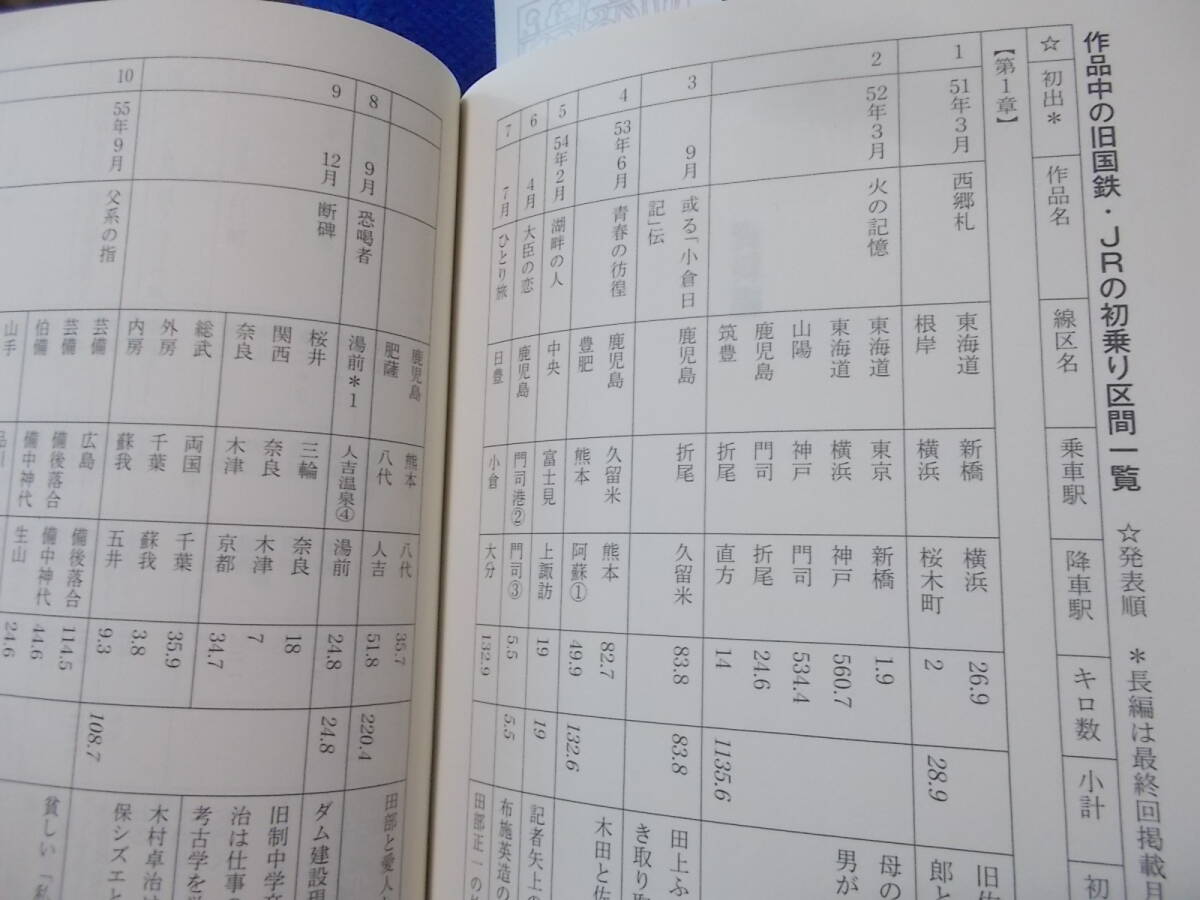 作品中の旧国鉄・JRの初乗り区間一覧 ☆発表順 *長編は最終回掲載月
☆ 初出* 作品名 線区名 乗車駅 降車駅 キロ数 小計 初
【第1章】
1 51年3月 西郷札 東海道 新橋 横浜 26.9
根岸 横浜 桜木町 2 28.9
旧佐
郎と
2 52年3月 火の記憶 東海道 東京 新橋 1.9
東海道 横浜 神戸 560.7
山陽 神戸 門司 534.4
鹿児島 門司 折尾 24.6
筑豊 折尾 直方 14 1135.6
母の
男が
3 9月 或る「小倉日記」伝 鹿児島 折尾 久留米 83.8 83.8
田上ふ
き取り取
4 53年6月 青春の彷徨 鹿児島 久留米 熊本 82.7
豊肥 熊本 阿蘇① 49.9 132.6
木田と佐
5 54年2月 湖畔の人 中央 富士見 上諏訪 19 19 記者矢上の
6 4月 大臣の恋 鹿児島 門司港② 門司③ 5.5 5.5 布施英造の
7 7月 ひとり旅 日豊 小倉 大分 132.9 田部正一の
鹿児島 熊本 八代 35.7
肥薩 八代 人吉 51.8 220.4
田部と愛人
8 9月 恐喝者 湯前*1 人吉温泉④ 湯前 24.8 24.8 ダム建設現
9 12月 断碑 桜井 三輪 奈良 18
関西 奈良 木津 7
奈良 木津 京都 34.7
総武 両国 千葉 35.9
外房 千葉 蘇我 3.8
内房 蘇我 五井 9.3 108.7
旧制中学卒
治は仕事の
考古学を学
木村卓治は
保シズエと
10 55年9月 父系の指 芸備 広島 備後落合 114.5
芸備 備後落合 備中神代 44.6
伯備 備中神代 生山 24.6
山手 品川
貧しい「私